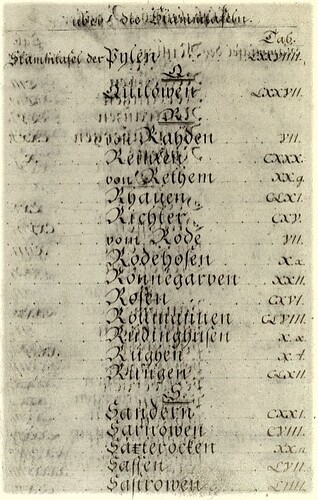 über die Stammtafeln.
Tab.
Stammtafel der Pylen LXXVIIII.
Q.
Quilowen LXXVII.
R.
von Rahden VII.
Reinken CXXX.
von Rethem XX.g.
Rhauen CLXI.
Richter CXV.
vom Rode VII.
Rodehosen X.x.
Ronnegarven XXII.
Rosen CXVI.
CLVIII.
Rudinghusen X.x.
Rughen X.t.
Rungen CLXII.
S.
Sandern CXXI.
Sarnowen CVIII.
Saxterocken XX.n.
Sassen LVII.
Sastrowen LIIII.